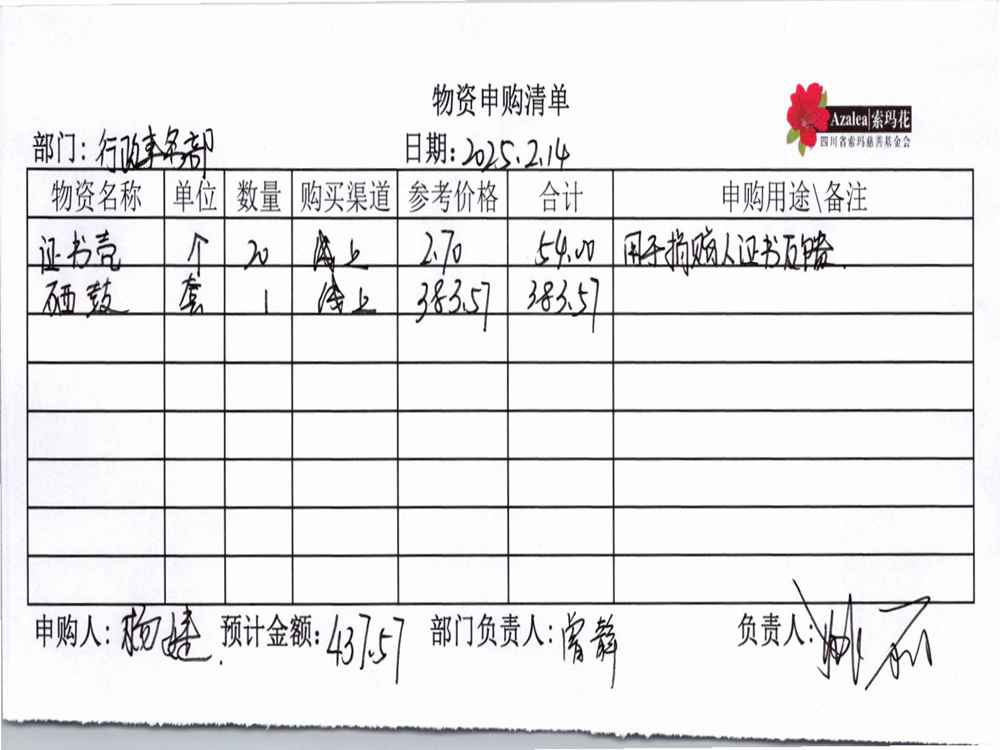 物资申购清单
Azalea 索玛花
四川省索玛慈善基金会
部门：行政事务部 日期：2025.2.14
物资名称 单位 数量 购买渠道 参考价格 合计 申购用途\备注
证书壳 个 20 线上 2.70 54.00 用于捐赠人证书
硒鼓 套 1 线上 383.57 383.57
申购人：杨婕 预计金额：437.57 部门负责人：曾静 负责人：